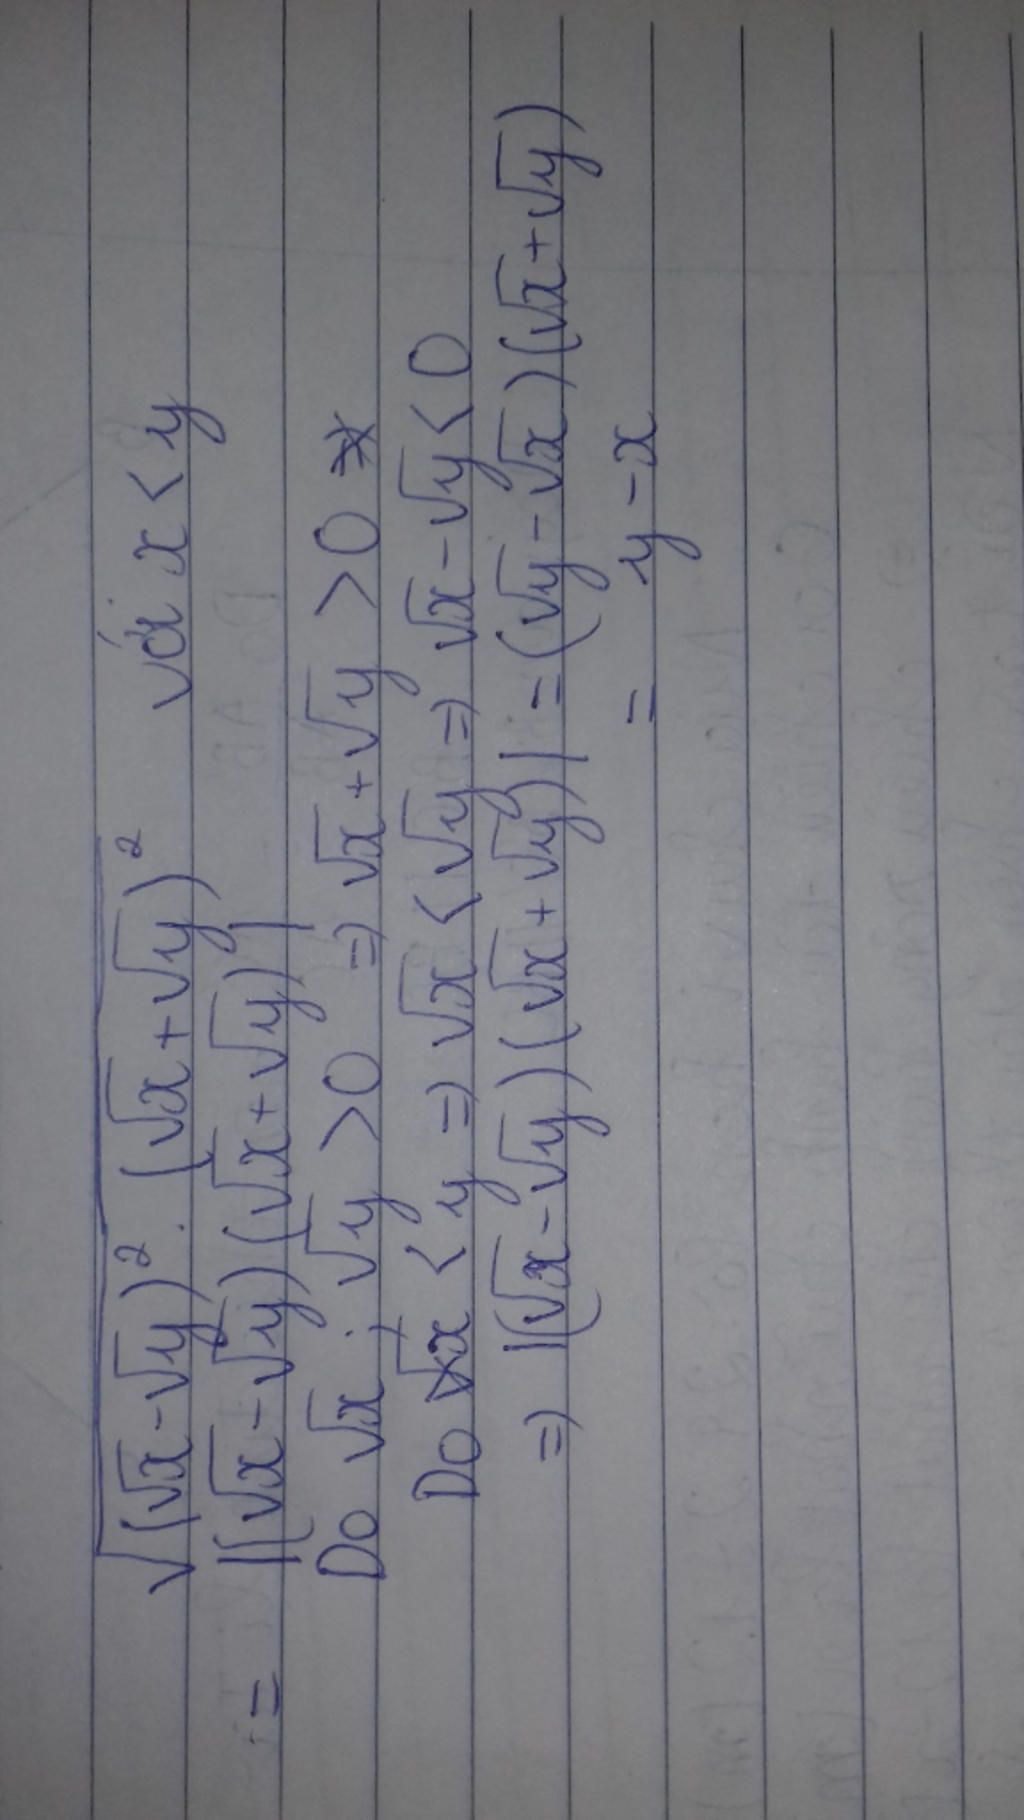 √((√x-√y)². (√x+√y)²) với x < y
= |(√x-√y)(√x+√y)|
Do √x; √y >0 => √x+√y >0
Do x < y => √x < √y => √x-√y < 0
=> |(√x-√y)(√x+√y)| = (√y-√x)(√x+√y)
= y-x